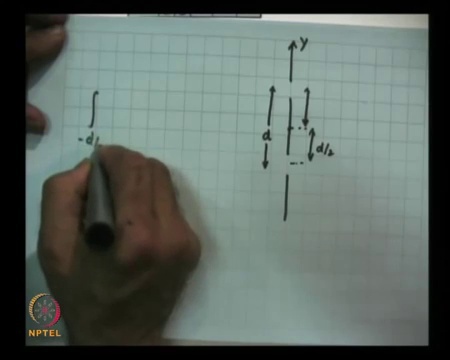 y
d
d/2
∫
-d/
NPTEL